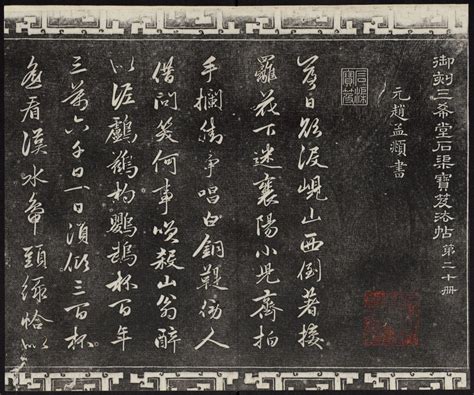 御刻三希堂石渠寶笈法帖 第二十册
元趙孟頫書
落日欲没峴山西倒著接
䍦花下迷襄陽小兒齊拍
手攔街爭唱白銅鞮傍人
借問笑何事笑殺山翁醉
似泥鸕鶿杓鸚鵡杯百年
三萬六千日一日須傾三百杯
遥看漢水鴨頭綠恰似